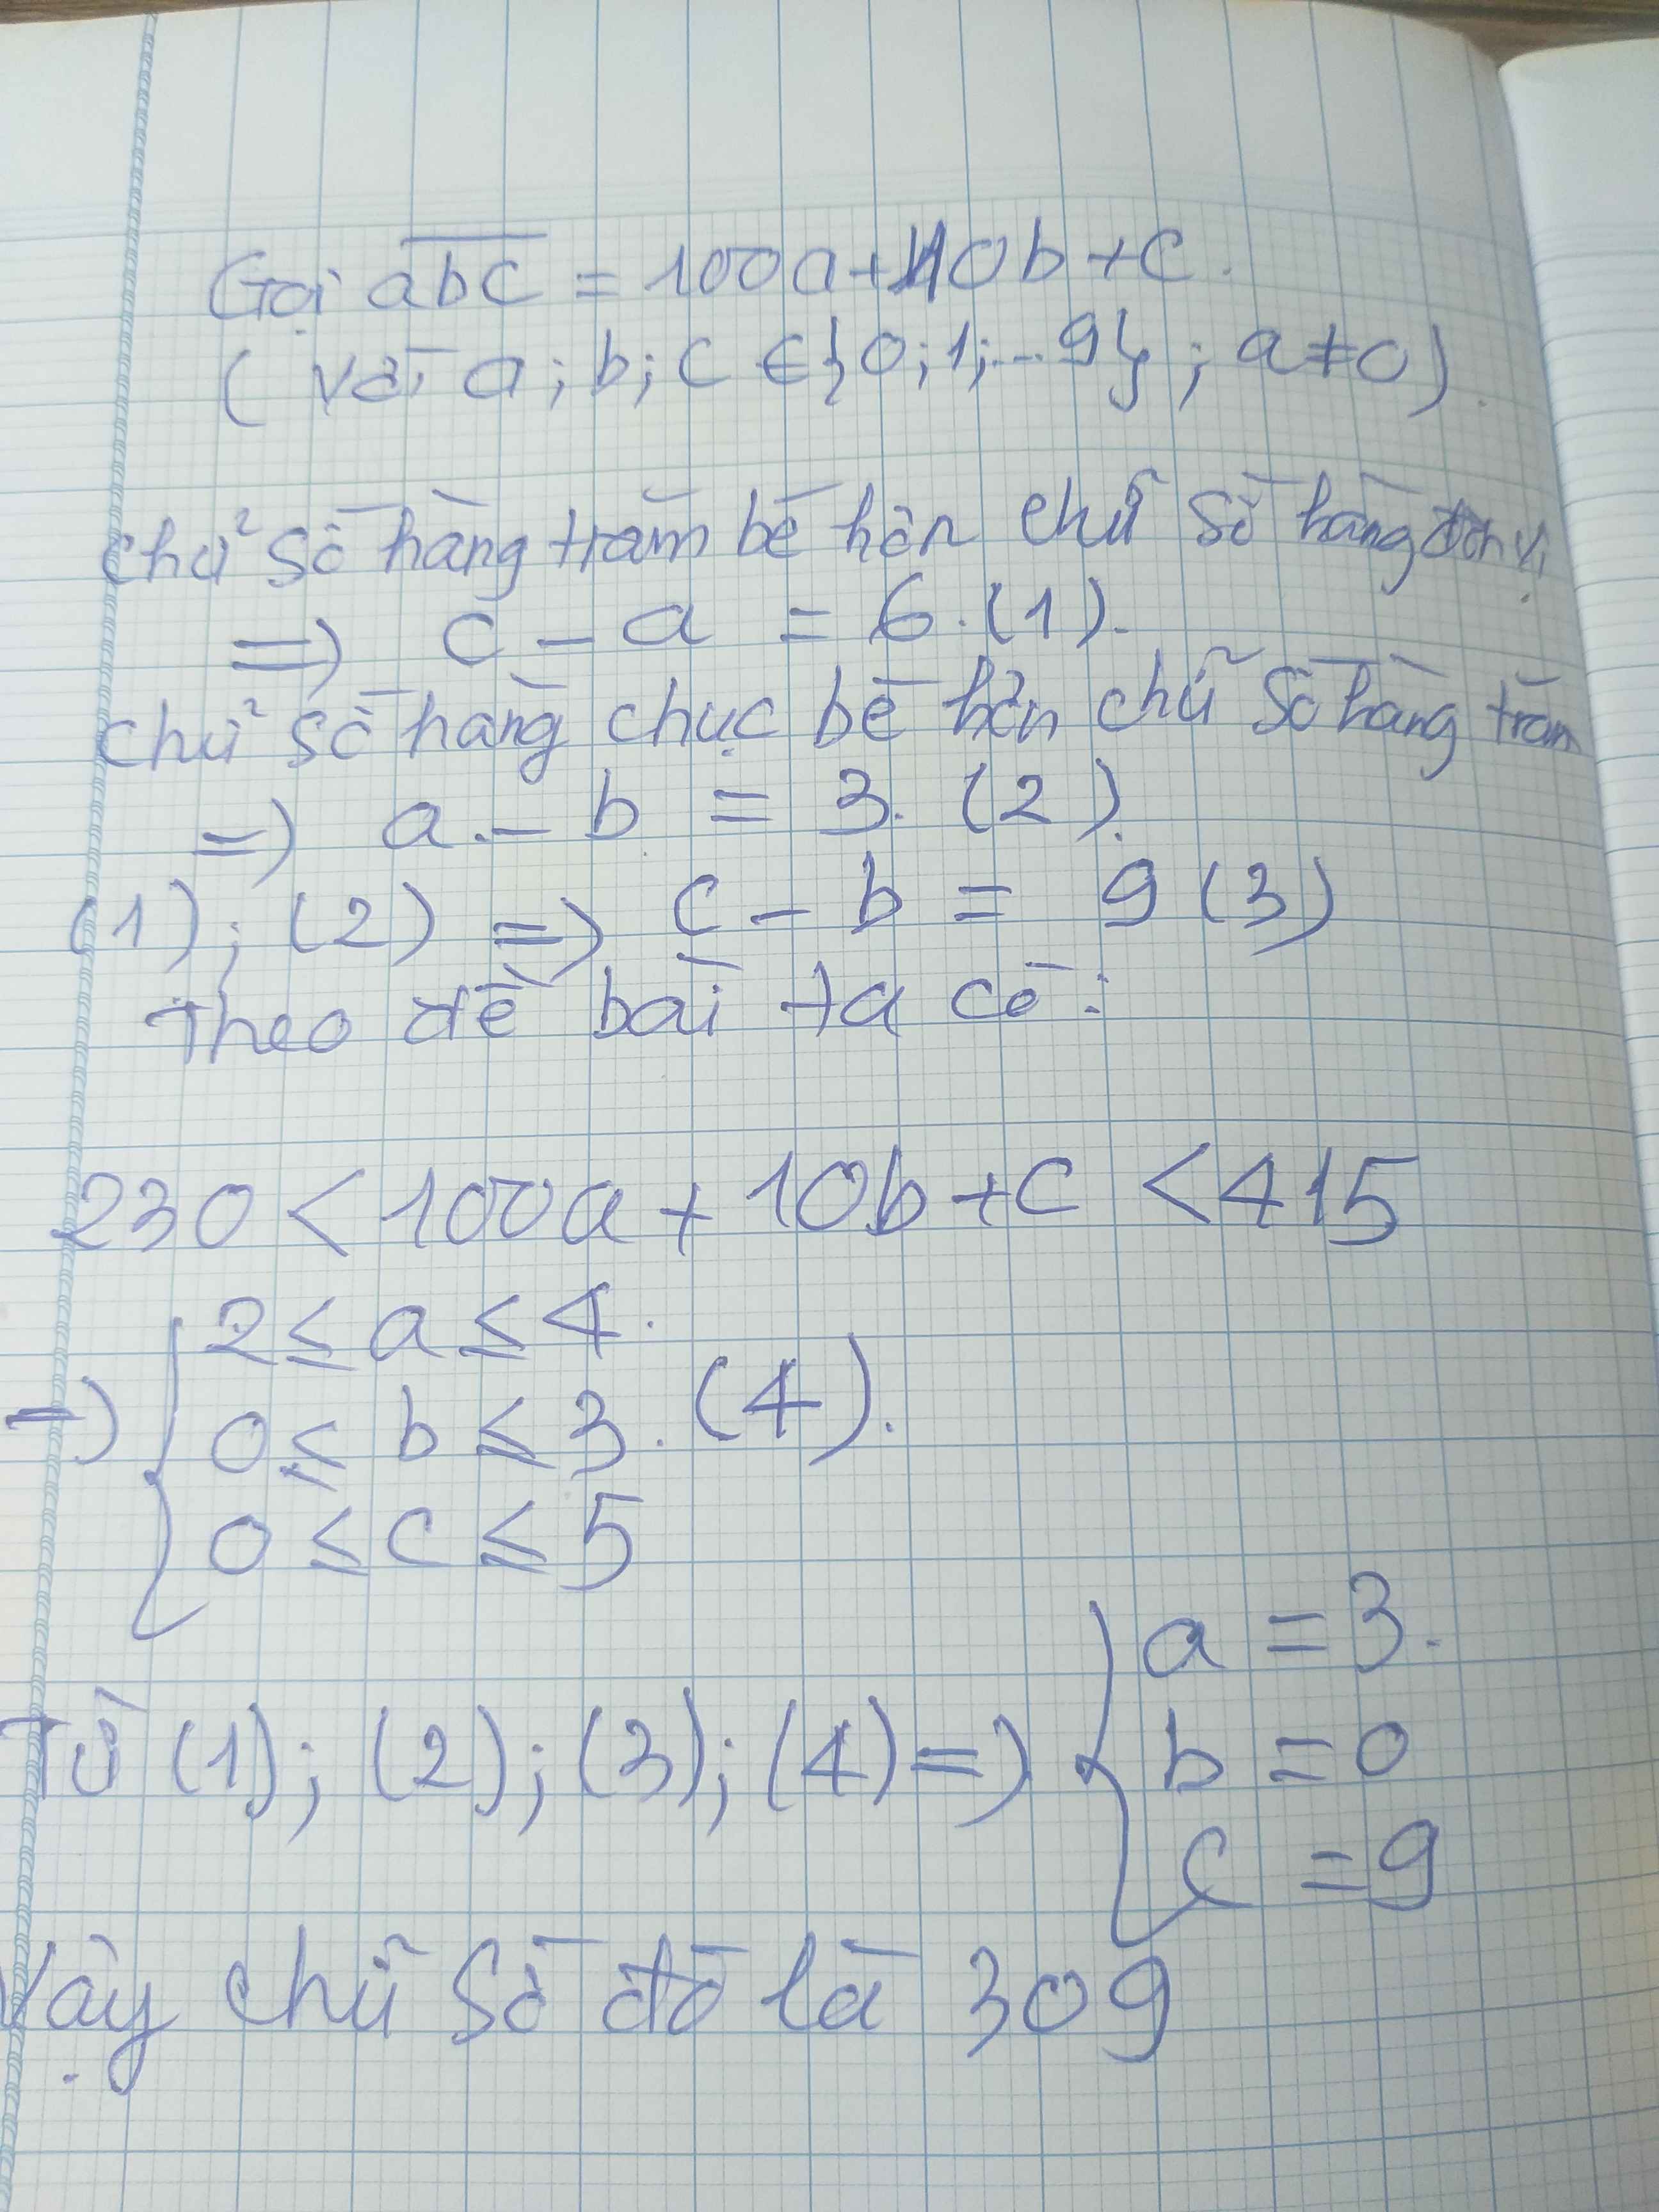 Gọi abc = 100a + 10b + c.
(Với a; b; c ∈ {0; 1; ... 9}; a ≠ 0).
Chử số hàng trăm bé hơn chữ số hàng đơn vị
=> c - a = 6. (1).
Chử số hàng chục bé hơn chữ số hàng trăm
=> a - b = 3. (2).
(1); (2) => c - b = 9 (3)
Theo đề bài ta có:
230 < 100a + 10b + c < 415
2 ≤ a ≤ 4.
=> { 0 ≤ b ≤ 3. (4).
0 ≤ c ≤ 5
a = 3.
Từ (1); (2); (3); (4) => { b = 0
c = 9
Vậy chữ số đó là 309